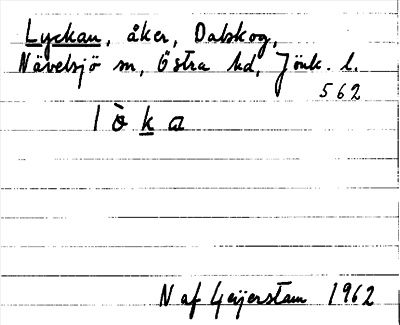 Lyckan, åker, Dalskog,
Nävelsjö sn, Östra hd, Jönk. l.
562
lòka
N af Geijerstam 1962